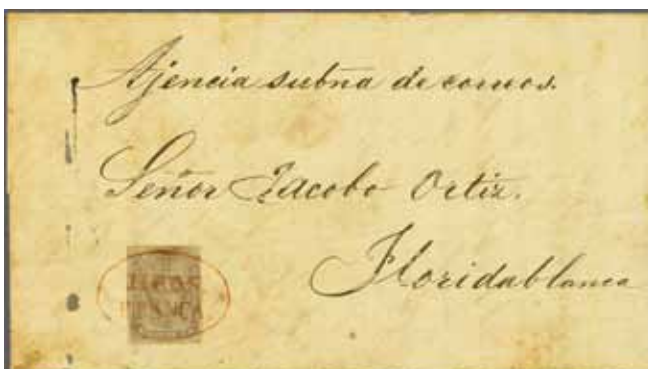 Ajencia subña de correos.
Señor Jacobo Ortiz.
Floridablanca